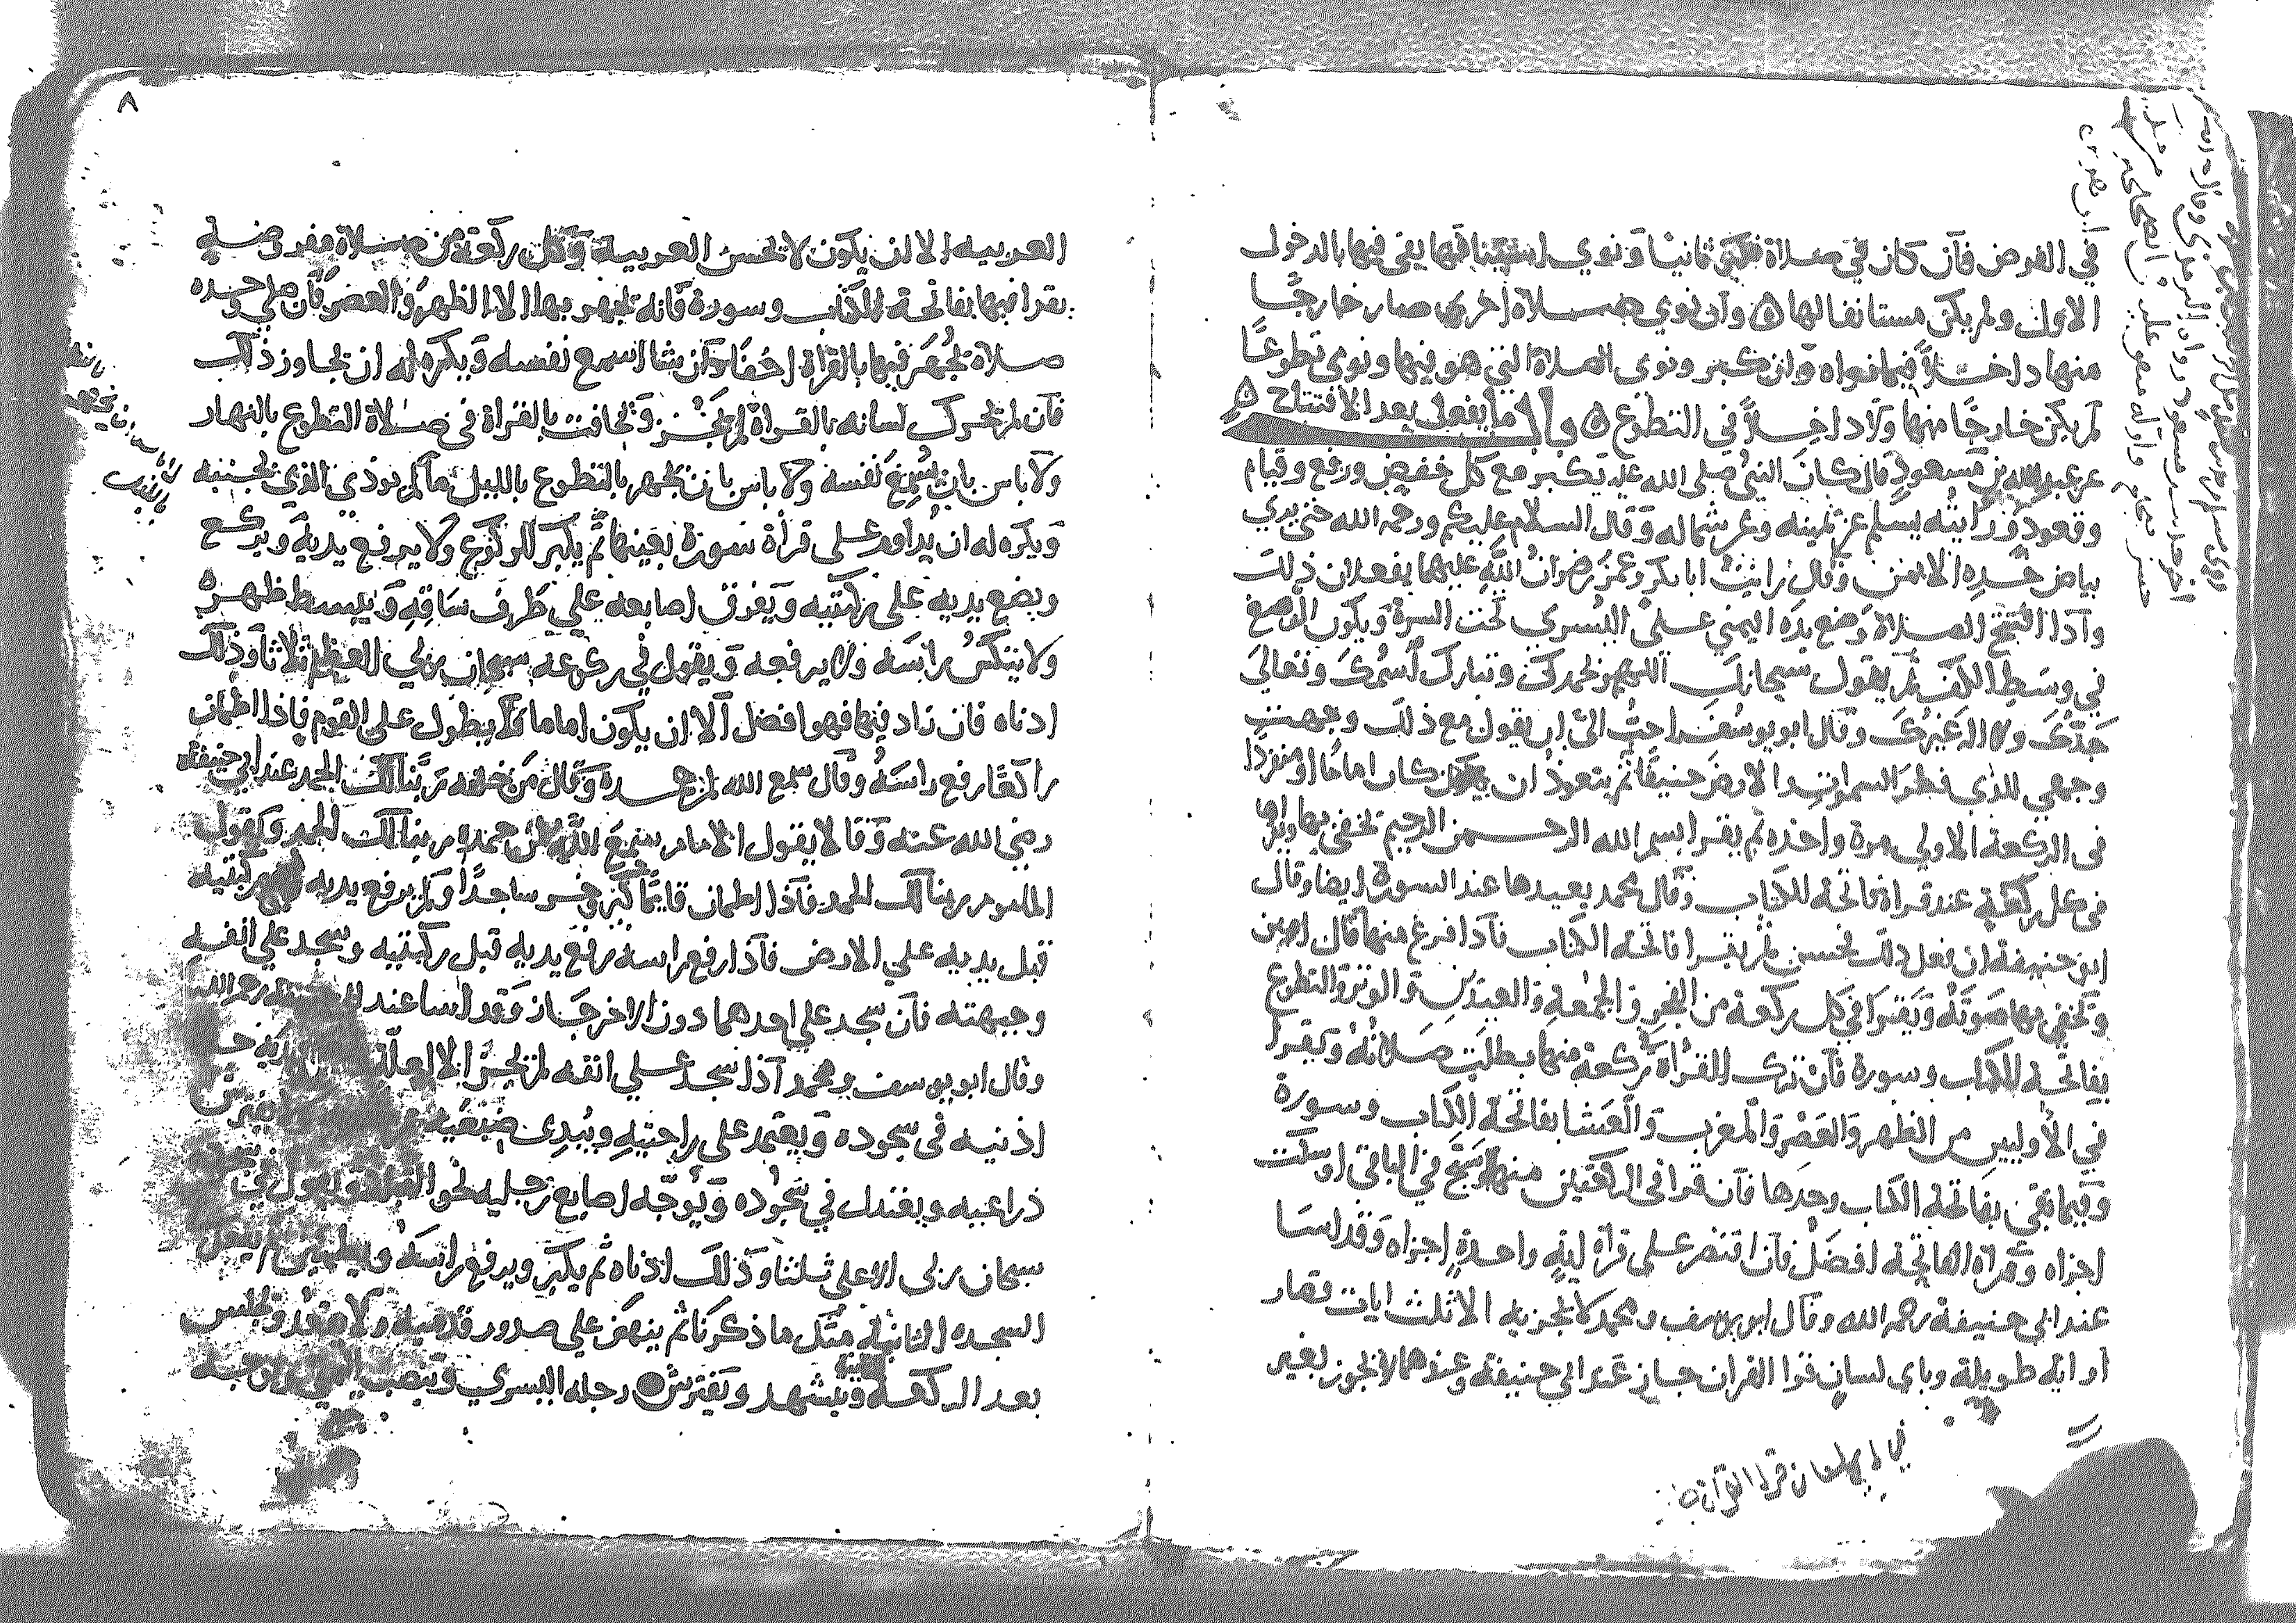 في الفرض فان كان في صلاة فكبر ثانيا ونوى فيما بقى فيها بالدخول
الاول ولم يكن مستانفا لها وان نوي صلاة اخري صار خارجًا
منها داخلاً فيما نواه وان كبر ونوى الصلاة التي هو فيها ونوى تطوعًا
لم يكن خارجًا منها ولا داخلاً في التطوع باب ما يفعل بعد الافتتاح
عن عبد الله بن مسعود قال كان النبي صلى الله عليه يكبر مع كل خفض ورفع وقيام
وقعود ورايته يسلم عن يمينه وعن شماله وقال السلام عليكم ورحمه الله حتى يري
بياض خده الايمن وقال رايت ابا بكر وعمر رضوان الله عليهما يفعلان ذلك
واذا افتتح الصلاة وضع يده اليمني على اليسري تحت السرة ويكون الوضع
في وسط الكف ثم يقول سبحانك اللهم وبحمدك وتبارك اسمك وتعالى
جدك ولا اله غيرك وقال ابو يوسف احب الي ان يقول مع ذلك وجهت
وجهي للذي فطر السموات والارض حنيفا ثم يتعوذ ان كان اماما او منفردا
في الركعة الاولي مرة واحده ثم يقرا بسم الله الرحمن الرحيم يخفي بها ويقراها
في كل ركعة عند قراة فاتحة الكتاب وقال محمد يعيدها عند السورة ايضا وقال
ابو حنيفة ان فعل ذلك فحسن ثم يقرا فاتحة الكتاب فاذا فرغ منها قال امين
ويخفي بها صوته ويقرا في كل ركعة من الفجر والجمعة والعيدين والوتر والتطوع
بفاتحة الكتاب وسورة فان ترك القراة في ركعة منها بطلت صلاته ويقرا
في الاوليين من الظهر والعصر والمغرب والعشا بفاتحة الكتاب وسورة
وفيما بقي بفاتحة الكتاب وحدها فان قرا في الركعتين منها وسبح في الباقي او سكت
اجزاه وقراة الفاتحة افضل فان اقتصر على قراة اية واحدة اجزاه وقد اسا
عند ابي حنيفة رحمه الله وقال ابو يوسف ومحمد لا يجزيه الا ثلث ايات قصار
او ايه طويلة وباي لسان قرا القران جاز عند ابي حنيفة وعندهما لا يجوز بغير
٨
العربيه الا ان يكون لا يحسن العربية وكل ركعة من صلاة مفروضة
يقرا فيها بفاتحة الكتاب وسورة فانه يجهر بها الا الظهر والعصر فان صلى وحده
صلاة يجهر فيها بالقراة اخفا وان شا اسمع نفسه ويكره له ان يجاوز ذلك
فان لم يحرك لسانه بالقراة لم يجز ويخافت بالقراة في صلاة التطوع بالنهار
ولا باس بان يسمع نفسه ولا باس بان يجهر بالتطوع بالليل ما لم يوذي الذي بجنبه
ويكره له ان يداوم على قراة سورة بعينها ثم يكبر للركوع ولا يرفع يديه ويركع
ويضع يديه على ركبتيه ويفرق اصابعه علي طرف ساقه ويبسط ظهره
ولا ينكس راسه ولا يرفعه ويقول في ركوعه سبحان ربي العظيم ثلاثا وذلك
ادناه فان زاد فيها فهو افضل الا ان يكون اماما لا يطول على القوم فاذا اطمان
راكعًا رفع راسه وقال سمع الله لمن حمده وقال من خلفه ربنا لك الحمد عند ابي حنيفة
رضي الله عنه وقالا يقول الامام سمع الله لمن حمده ربنا لك الحمد ويقول
الماموم ربنا لك الحمد فاذا اطمان قايمًا كبر وخر ساجدًا ولم يرفع يديه ركبتيه
قبل يديه علي الارض فاذا رفع راسه رفع يديه قبل ركبتيه وسجد علي انفه
وجبهته فان سجد علي احدهما دون الاخر جاز وقد اسا عند رحمه الله
وقال ابو يوسف ومحمد اذا سجد علي انفه لم يجز الا لعلة
اذنيه في سجوده ويعتمد على راحتيه ويبدى ضبعيه
ذراعيه ويعتدل في سجوده ويوجه اصابع رجليه نحو القبلة ويقول في
سبحان ربي الاعلي ثلثا وذلك ادناه ثم يكبر ويرفع راسه ويطمين
السجده الثانية مثل ما ذكرنا ثم ينهض علي صدور قدميه ولا يقعد ويجلس
بعد الركعة الثانية ويتشهد ويفترش رجله اليسري وينصب